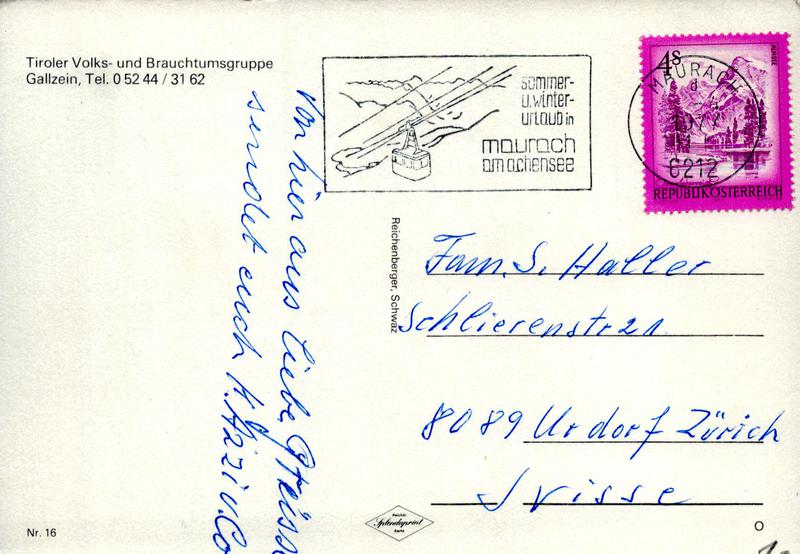 Tiroler Volks- und Brauchtumsgruppe
Gallzein, Tel. 0 52 44 / 31 62
Von hier aus liebe Grüsse
sendet euch K.
sommer-
u.winter-
urlaub in
maurach
am achensee
4 S
ALMSEE
MAURACH
1977
6212
REPUBLIK ÖSTERREICH
Reichenberger, Schwaz
Fam. S. Haller
Schlierenstr 21
8089 Urdorf Zürich
Svisse
Nr. 16
Splendoprint
Karte
O